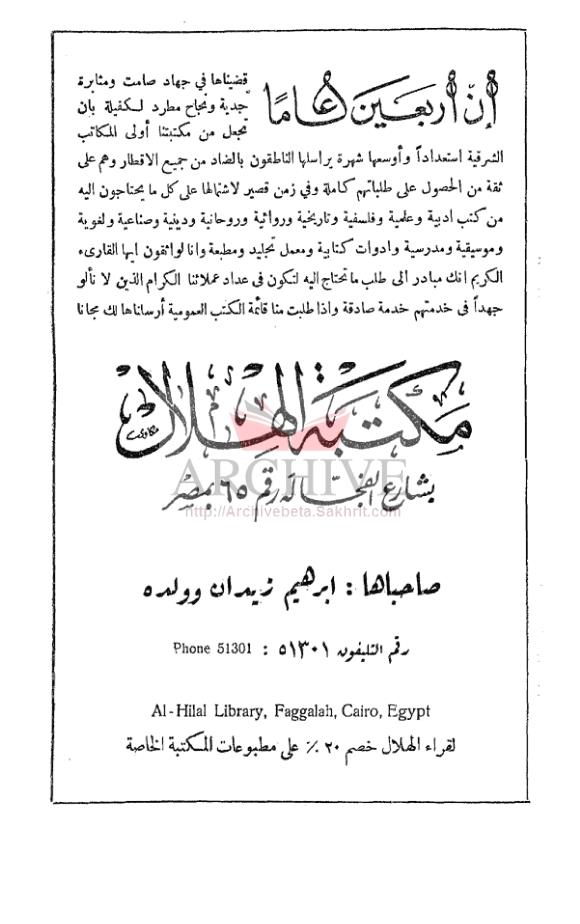 إنّ أربعين عامًا
قضيناها في جهاد صامت ومثابرة
جدية ونجاح مطرد لكفيلة بان
تجعل من مكتبتنا أولى المكاتب
الشرقية استعداداً وأوسعها شهرة يراسلها الناطقون بالضاد من جميع الاقطار وهم على
ثقة من الحصول على طلباتهم كاملة وفي زمن قصير لاشتمالها على كل ما يحتاجون اليه
من كتب ادبية وعلمية وفلسفية وتاريخية وروائية وروحانية ودينية وصناعية ولغوية
وموسيقية ومدرسية وادوات كتابية ومعمل تجليد ومطبعة وانا لواثقون ايها القارىء
الكريم انك مبادر الى طلب ما تحتاج اليه لتكون فى عداد عملائنا الكرام الذين لا نألو
جهداً فى خدمتهم خدمة صادقة واذا طلبت منا قائمة الكتب العمومية أرسلناها لك مجانا
مكتبة الهلال
ARCHIVE
بشارع الفجالة رقم ٦٥ بمصر
http://Archivebeta.Sakhrit.com
صاحباها : ابرهيم زيدان وولده
رقم التليفون ٥١٣٠١ : Phone 51301
Al-Hilal Library, Faggalah, Cairo, Egypt
لقراء الهلال خصم ٢٠ ٪ على مطبوعات المكتبة الخاصة